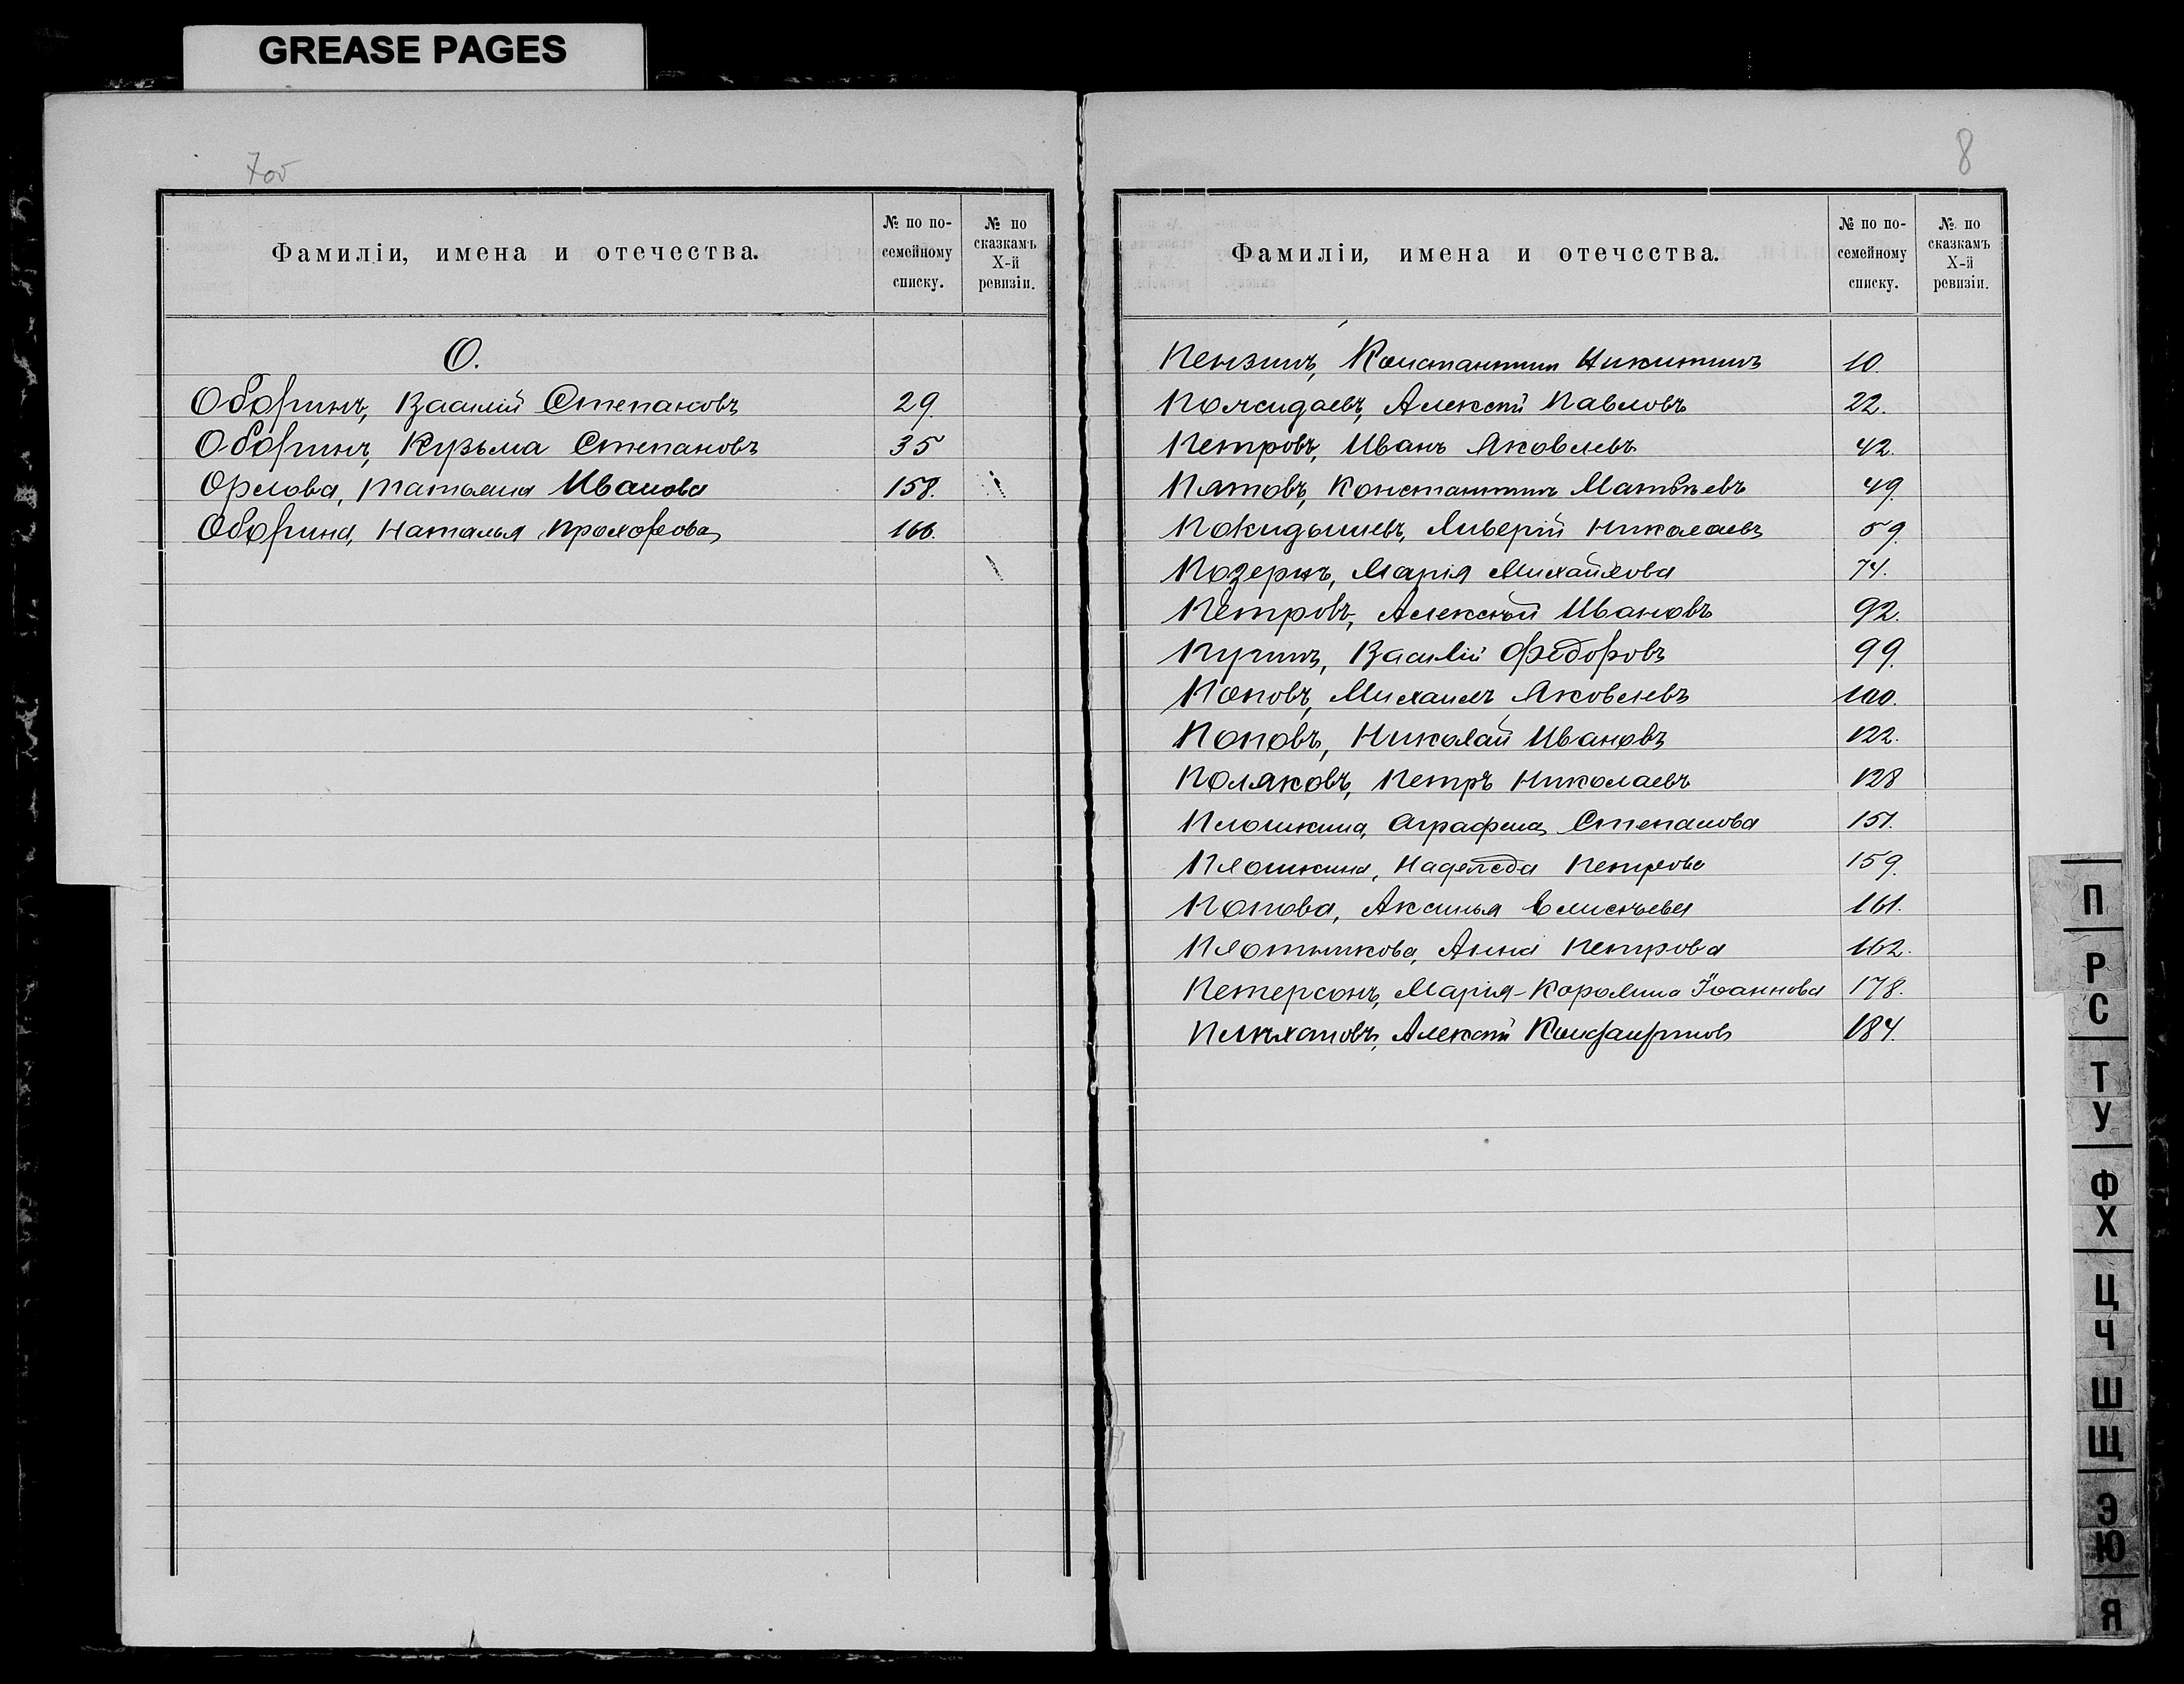 GREASE PAGES
7об
Фамиліи, имена и отечества.
№ по по-
семейному
списку.
№ по
сказкамъ
X-й
ревизіи.
О.
Оборинъ, Василій Степановъ 29
Оборинъ, Кузьма Степановъ 35
Орлова, Татьяна Иванова 158.
Оборина, Наталья Прохорова 166.
8
Фамиліи, имена и отечества.
№ по по-
семейному
списку.
№ по
сказкамъ
X-й
ревизіи.
Пензинъ, Константинъ Никитинъ 10.
Алексѣй Павловъ 22.
Петровъ, Иванъ Яковлевъ 42.
Пятовъ, Константинъ Матвѣевъ 49
Покидышевъ, Ливерій Николаевъ 59
Позернъ, Марія Михайлова 74.
Петровъ, Алексѣй Ивановъ 92.
Василій Федоровъ 99.
Поповъ, Михаилъ Яковлевъ 100.
Поповъ, Николай Ивановъ 122.
Поляковъ, Петръ Николаевъ 128
Плошкина, Аграфена Степанова 151.
Плошкина, Надежда Петрова 159.
Попова, Аксинья Елисѣева 161.
Плотникова, Анна Петрова 162.
Петерсонъ, Марія-Каролина Іоаннова 178.
Плѣхановъ, Алексѣй 184.
П
Р
С
Т
У
Ф
Х
Ц
Ч
Ш
Щ
Э
Ю
Я